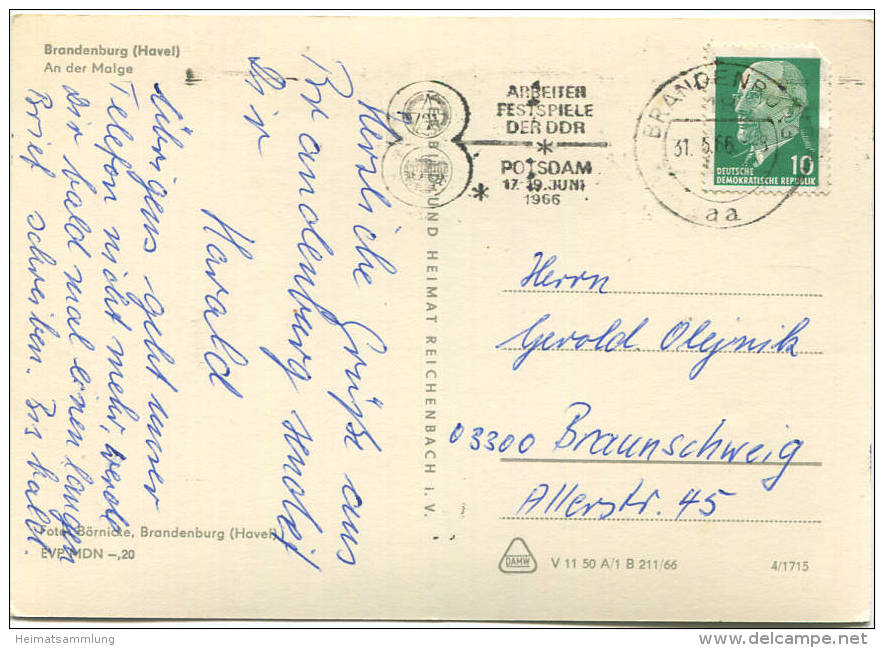 Brandenburg (Havel)
An der Malge
Herzliche Grüße aus
Brandenburg sendet
Dir
Harald
Übrigens geht unser
Telefon nicht mehr, werde
Dir bald mal einen langen
Brief schreiben. Bis bald.
Foto: Börnicke, Brandenburg (Havel)
EVP MDN –,20
UND HEIMAT REICHENBACH i. V.
ARBEITER
FESTSPIELE
DER DDR
POTSDAM
17.-19. JUNI
1966
BRANDENBURG
31.5.66
aa
10
DEUTSCHE
DEMOKRATISCHE REPUBLIK
Herrn
Gerold Olejnik
03300 Braunschweig
Allerstr. 45
DAMW
V 11 50 A/1 B 211/66
4/1715
Heimatsammlung
www.delcampe.net